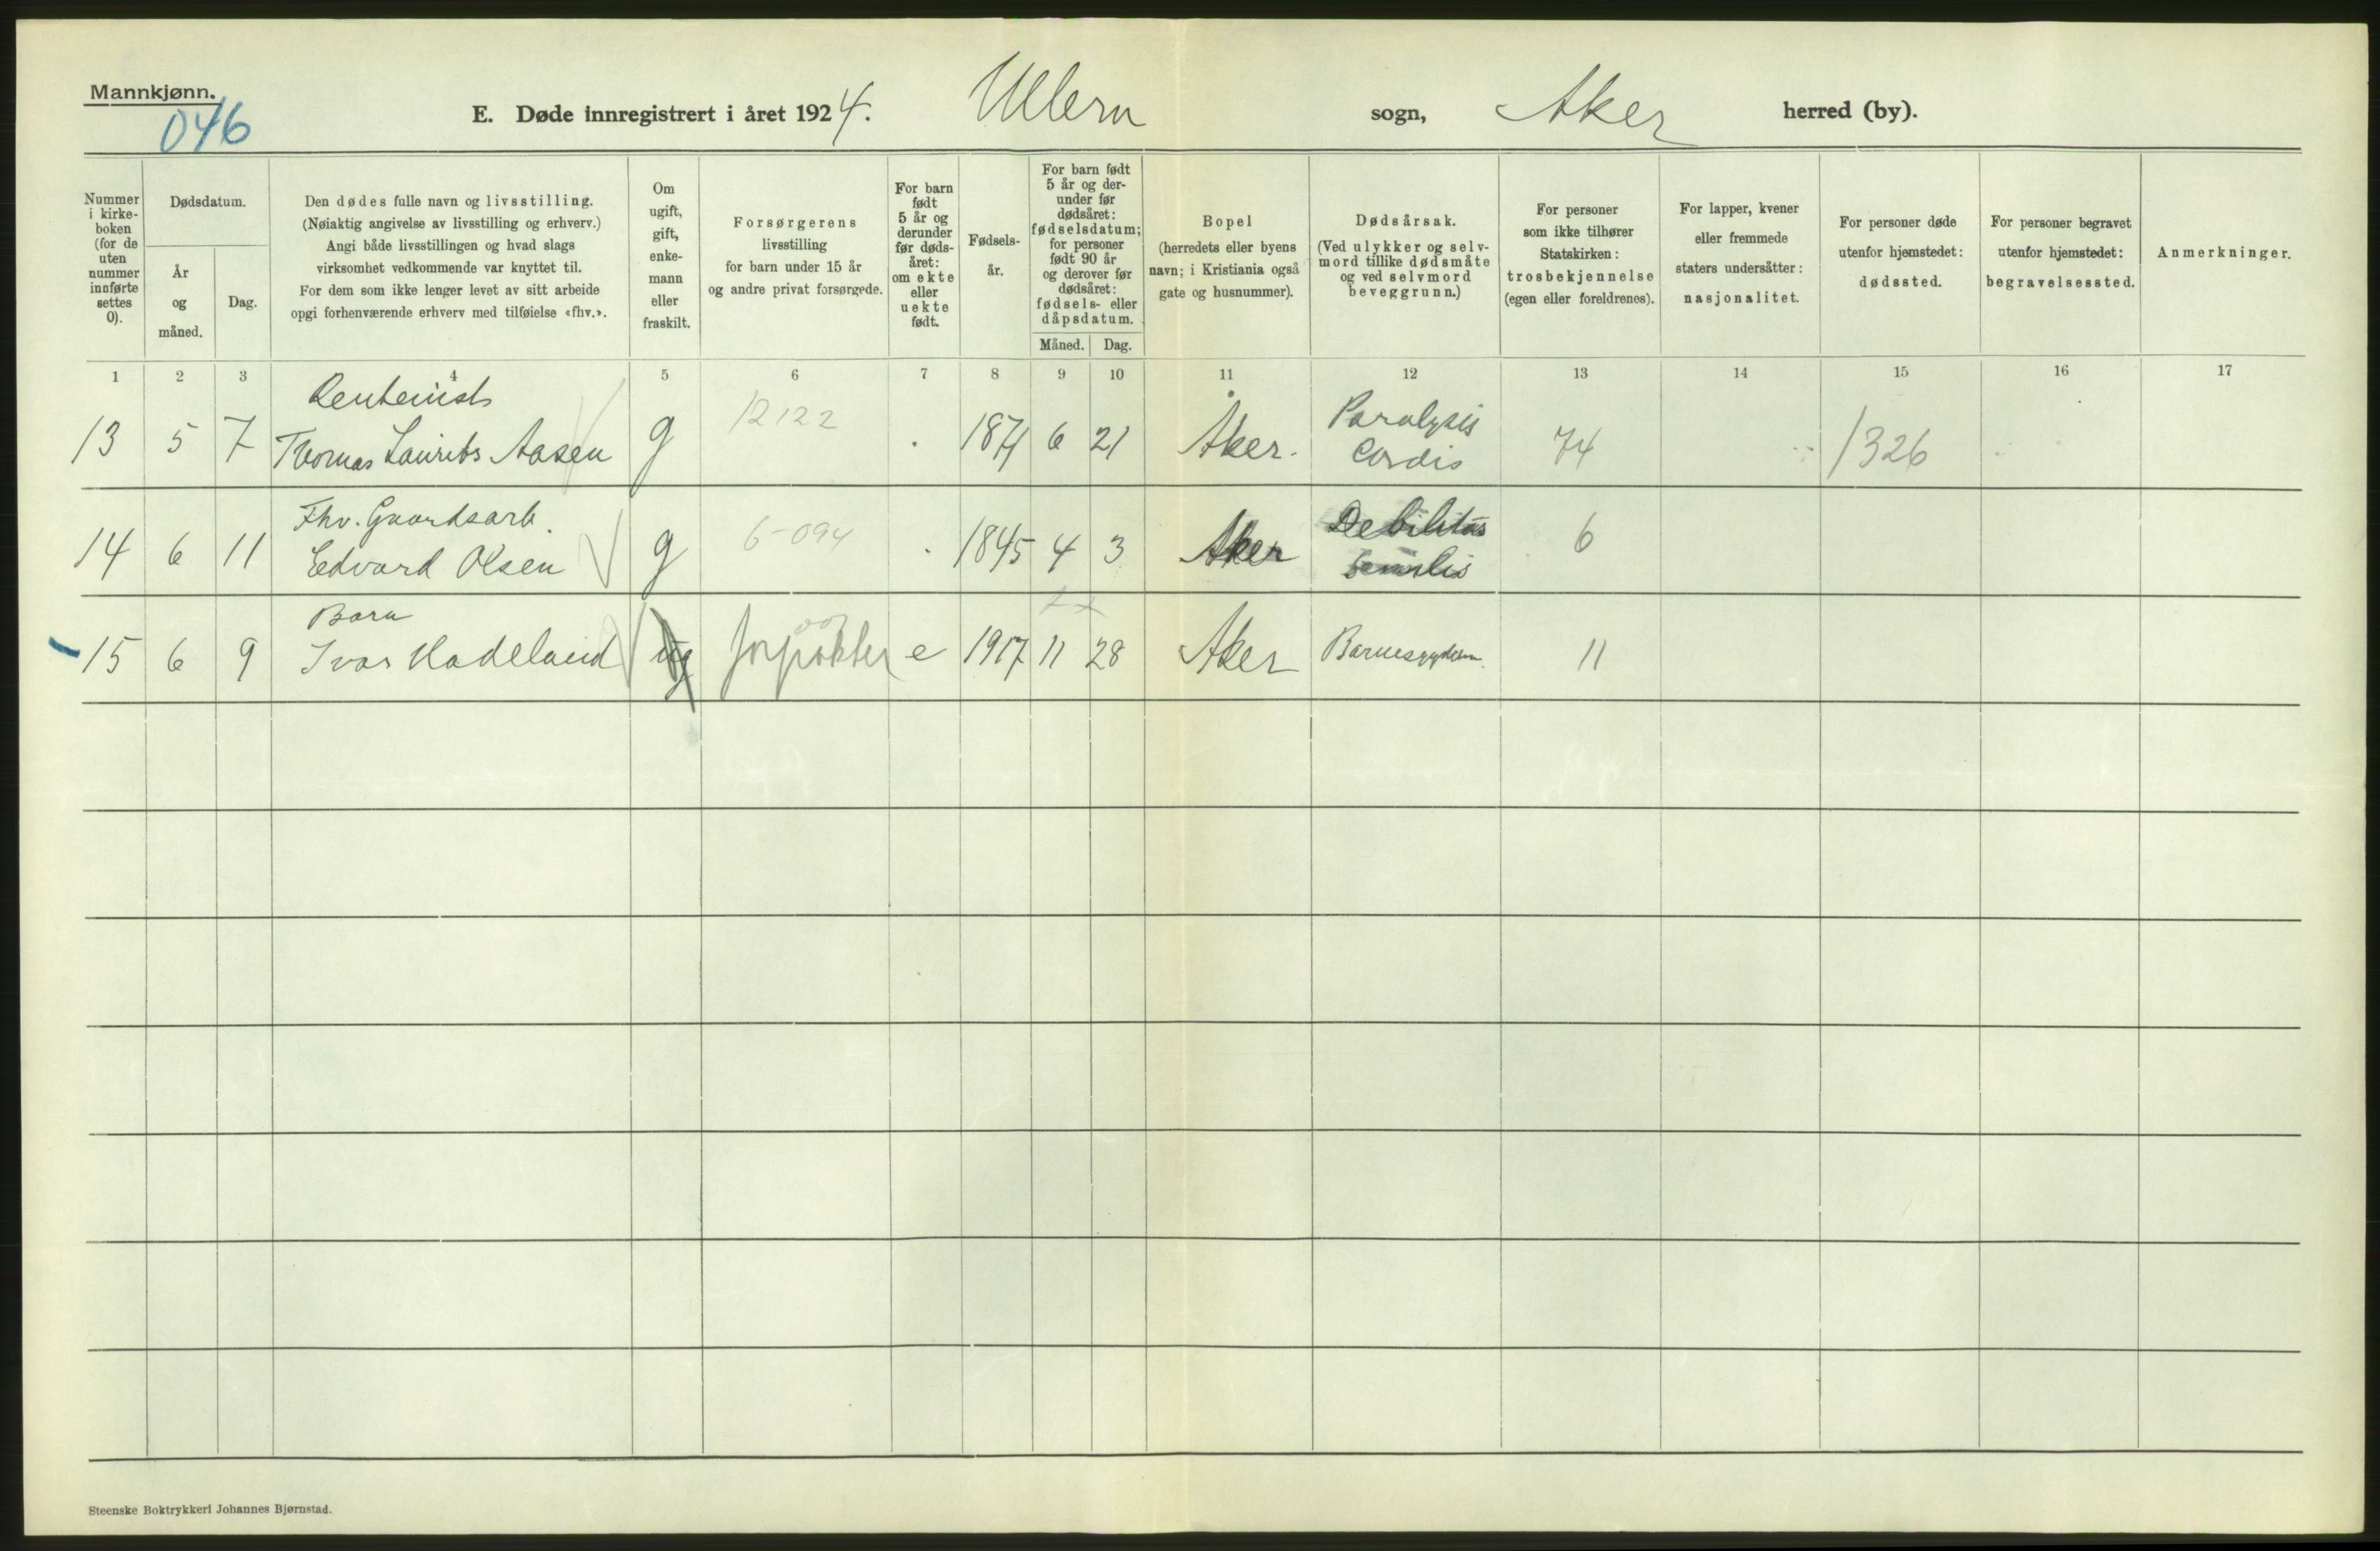 Mannkjønn.
046
E. Døde innregistrert i året 1924. Ullern sogn, Aker herred (by).
Nummer
i kirke-
boken
(for de
uten
nummer
innførte
settes
0).
Dødsdatum.
År
og
måned.
Dag.
Den dødes fulle navn og livsstilling.
(Nøiaktig angivelse av livsstilling og erhverv.)
Angi både livsstillingen og hvad slags
virksomhet vedkommende var knyttet til.
For dem som ikke lenger levet av sitt arbeide
opgi forhenværende erhverv med tilføielse «fhv.».
Om
ugift,
gift,
enke-
mann
eller
fraskilt.
Forsørgerens
livsstilling
for barn under 15 år
og andre privat forsørgede.
For barn
født
5 år og
derunder
før døds-
året:
om ekte
eller
uekte
født.
Fødsels-
år.
For barn født
5 år og der-
under før
dødsåret:
fødselsdatum;
for personer
født 90 år
og derover før
dødsåret:
fødsels- eller
dåpsdatum.
Måned. Dag.
Bopel
(herredets eller byens
navn; i Kristiania også
gate og husnummer).
Dødsårsak.
(Ved ulykker og selv-
mord tillike dødsmåte
og ved selvmord
beveggrunn.)
For personer
som ikke tilhører
Statskirken:
trosbekjennelse
(egen eller foreldrenes).
For lapper, kvener
eller fremmede
staters undersåtter:
nasjonalitet.
For personer døde
utenfor hjemstedet:
dødssted.
For personer begravet
utenfor hjemstedet:
begravelsessted.
Anmerkninger.
1 2 3 4 5 6 7 8 9 10 11 12 13 14 15 16 17
Rentenist 12122 Paralysis
13 5 7 Thomas Laurits Aasen g 1871 6 21 Aker. Cordis 74 1326
Fhv. Gaardsarb. 6-094 Debilitas
14 6 11 Edvard Olsen g 1845 4 3 Aker senilis 6
Barn
15 6 9 Ivar Hadeland ug forpakter e 1917 11 28 Aker 11
Steenske Boktrykkeri Johannes Bjørnstad.